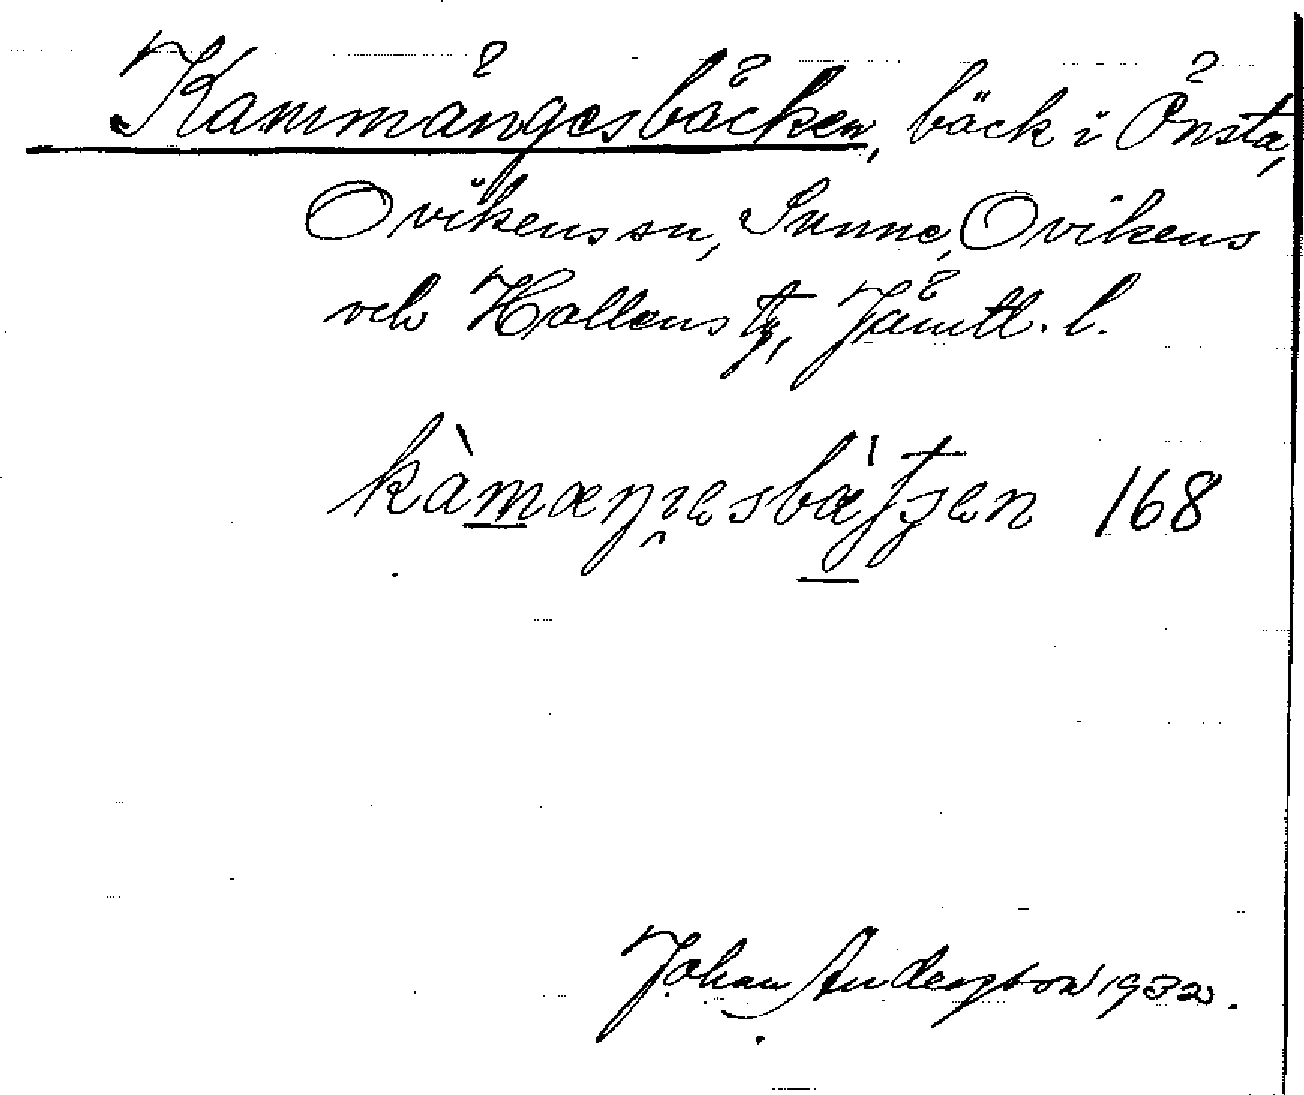 Kammängesbäcken, bäck i Önsta,
Ovikens sn, Sunne, Ovikens
och Hallens tg, Jämtl. l.
kàmæŋ̮ɪesbæ̀tʃen 168
Johan Anderzbon 1932.